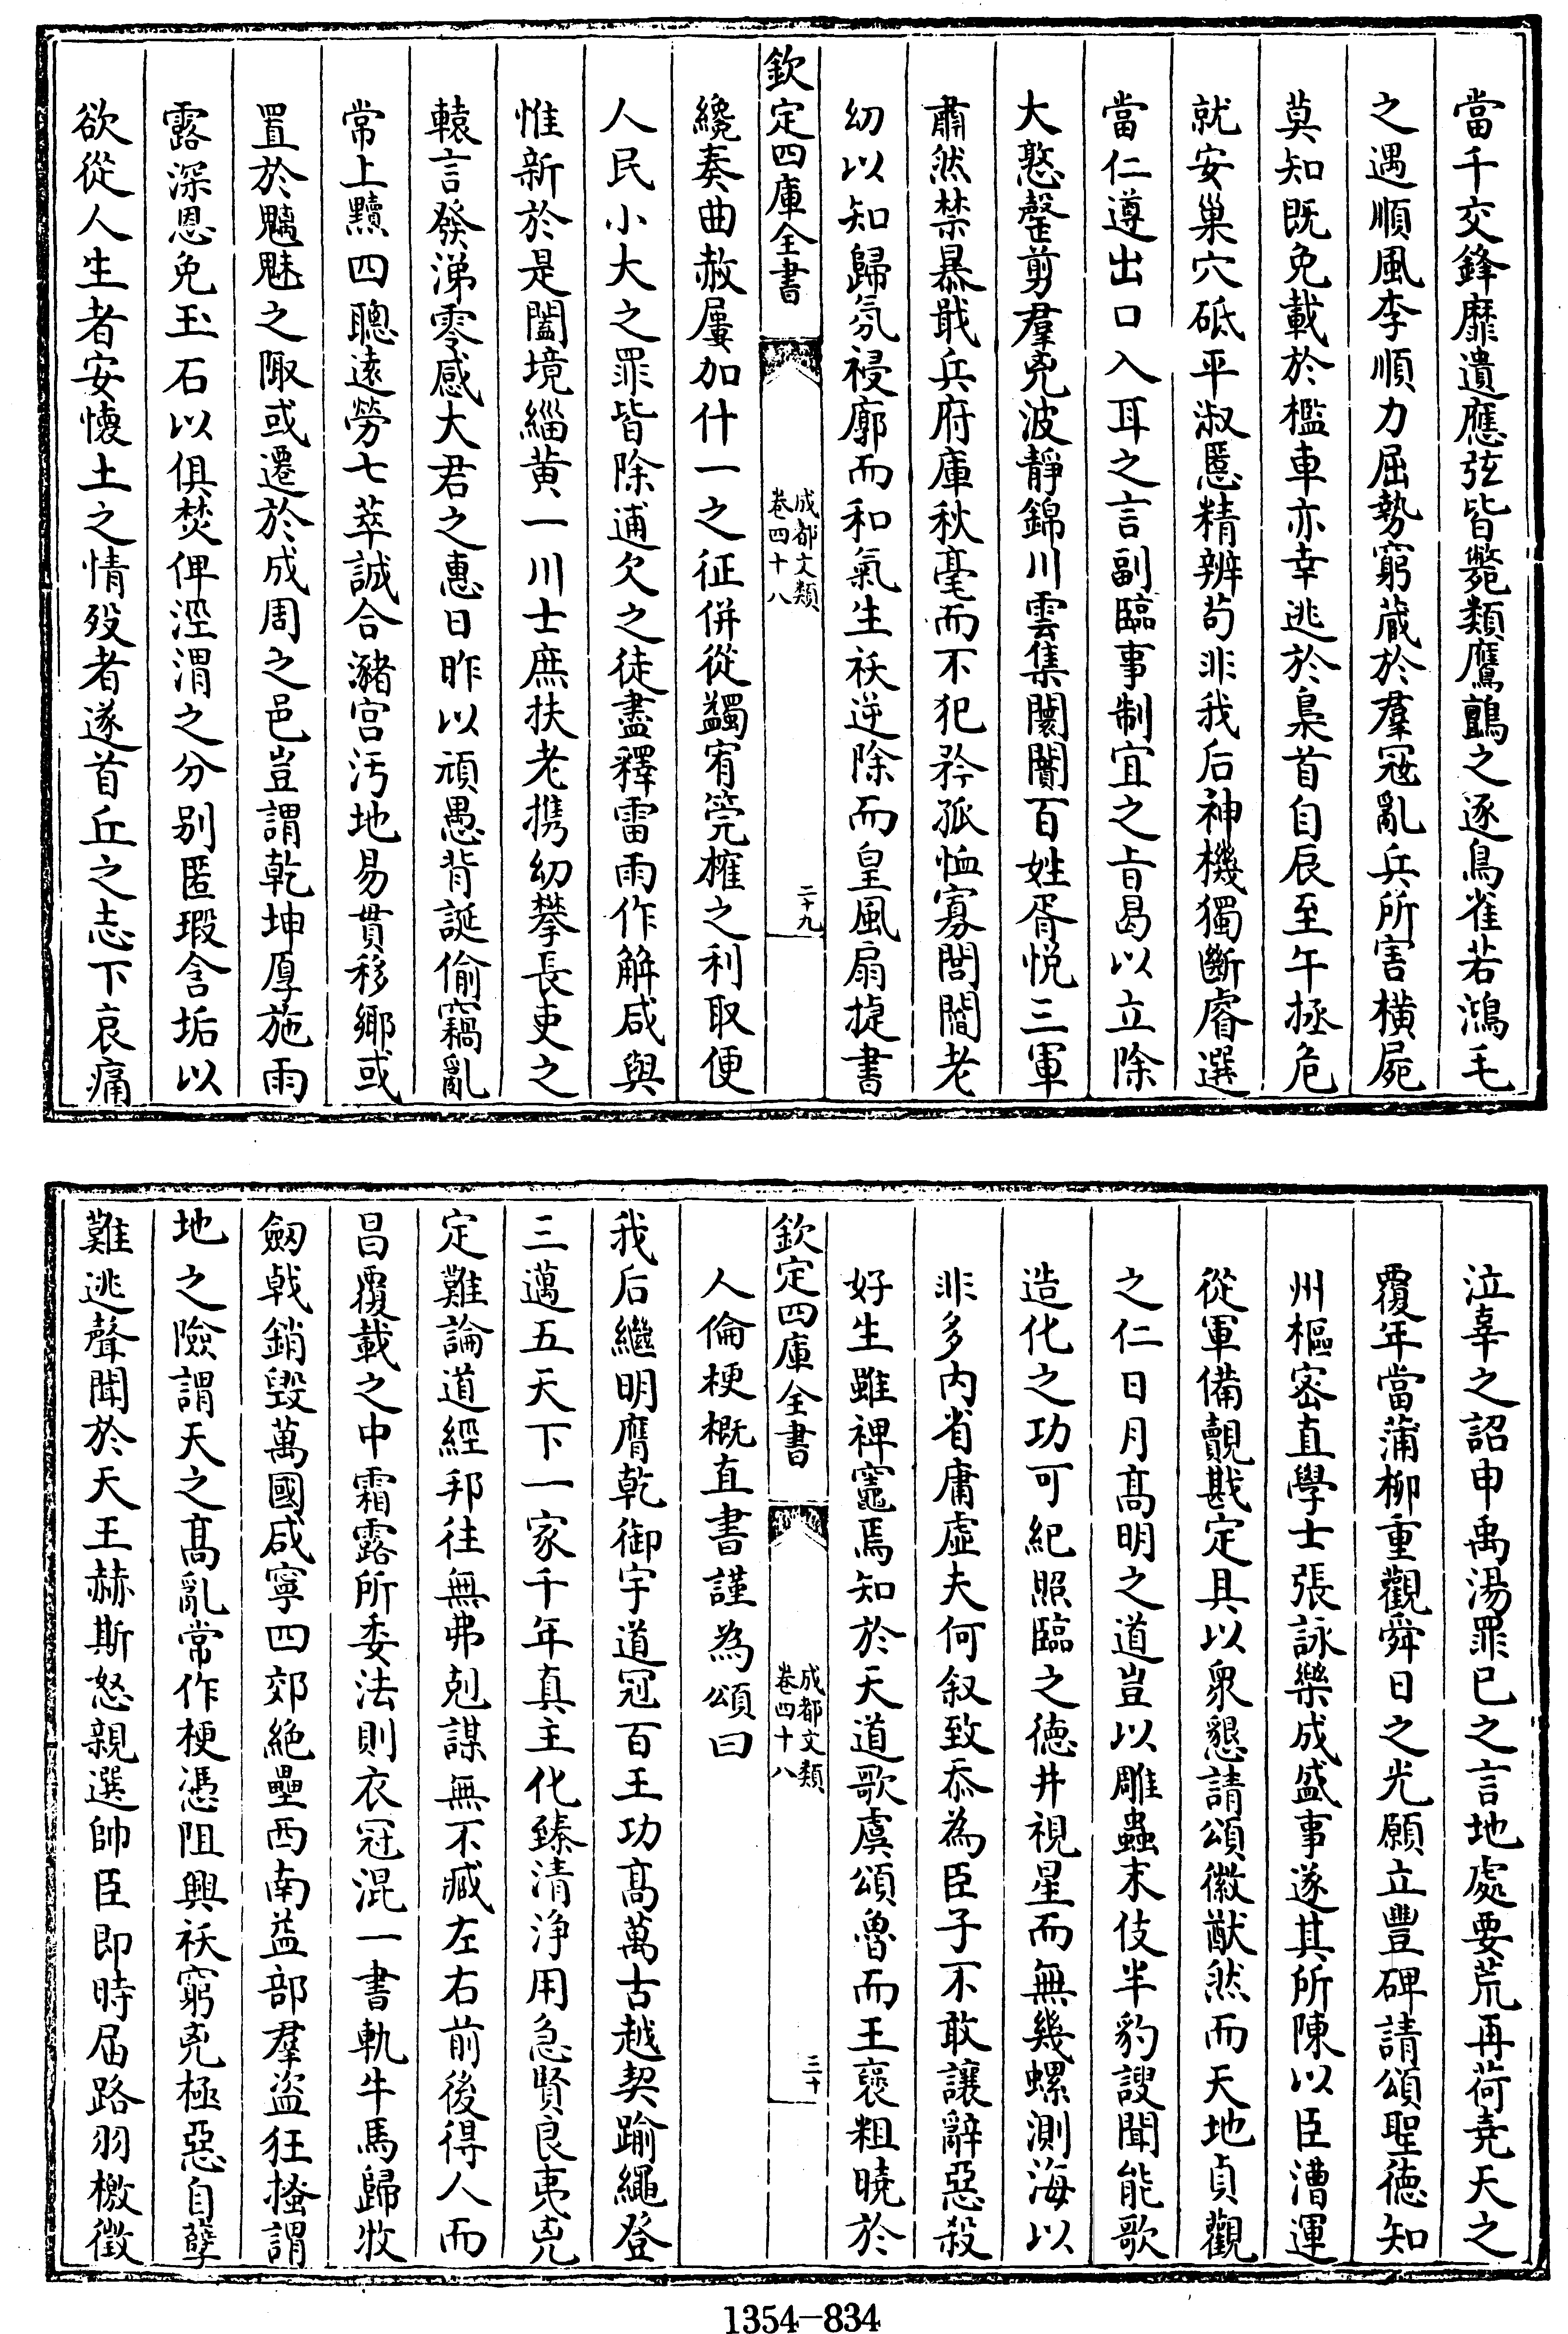 當千交鋒靡遺應弦皆斃類鷹鸇之逐鳥雀若鴻毛
之遇順風李順力屈勢窮藏於羣冦亂兵所害橫屍
莫知既免載於檻車亦幸逃於梟首自辰至午拯危
就安巢穴砥平淑慝精辨茍非我后神機獨斷睿選
當仁遵出口入耳之言副臨事制宜之旨曷以立除
大憝盤剪羣兇波靜錦川雲集闤闠百姓胥悅三軍
肅然禁暴戢兵府庫秋毫而不犯矜孤恤寡閭閻老
幼以知歸氛祲廓而和氣生祅逆除而皇風扇捷書
欽定四庫全書
成都文類
卷四十八
二十九
纔奏曲赦屢加什一之征併從蠲宥筦榷之利取便
人民小大之罪皆除逋欠之徒盡釋雷雨作解咸與
惟新於是闔境緇黃一川士庶扶老攜幼攀長吏之
轅言發涕零感大君之惠日昨以頑愚背誕偷竊亂
常上黷四聰遠勞七萃誠合瀦宮汚地易貫移鄉或
置於魑魅之陬或遷於成周之邑豈謂乾坤厚施雨
露深恩免玉石以俱焚俾涇渭之分别匿瑕含垢以
欲從人生者安懷土之情殁者遂首丘之志下哀痛
泣辜之詔申禹湯罪已之言地處要荒再荷堯天之
覆年當蒲柳重觀舜日之光願立豐碑請頌聖德知
州樞密直學士張詠樂成盛事遂其所陳以臣漕運
從軍備覩戡定具以衆懇請頌徽猷然而天地貞觀
之仁日月高明之道豈以雕蟲末伎半豹謏聞能歌
造化之功可紀照臨之德井視星而無幾螺測海以
非多内省庸虛夫何叙致忝為臣子不敢讓辭惡殺
好生雖禆竈焉知於天道歌虞頌魯而王裒粗曉於
欽定四庫全書
成都文類
卷四十八
三十
人倫梗概直書謹為頌曰
我后繼明膺乾御宇道冠百王功高萬古越契踰繩登
三邁五天下一家千年真主化臻清浄用急賢良夷兇
定難論道經邦往無弗剋謀無不臧左右前後得人而
昌覆載之中霜露所委法則衣冠混一書軌牛馬歸牧
劒戟銷毀萬國咸寧四郊絶壘西南益部羣盜狂搔謂
地之險謂天之高亂常作梗憑阻興祅窮兇極惡自孽
難逃聲聞於天王赫斯怒親選帥臣即時届路羽檄徵
1354—834